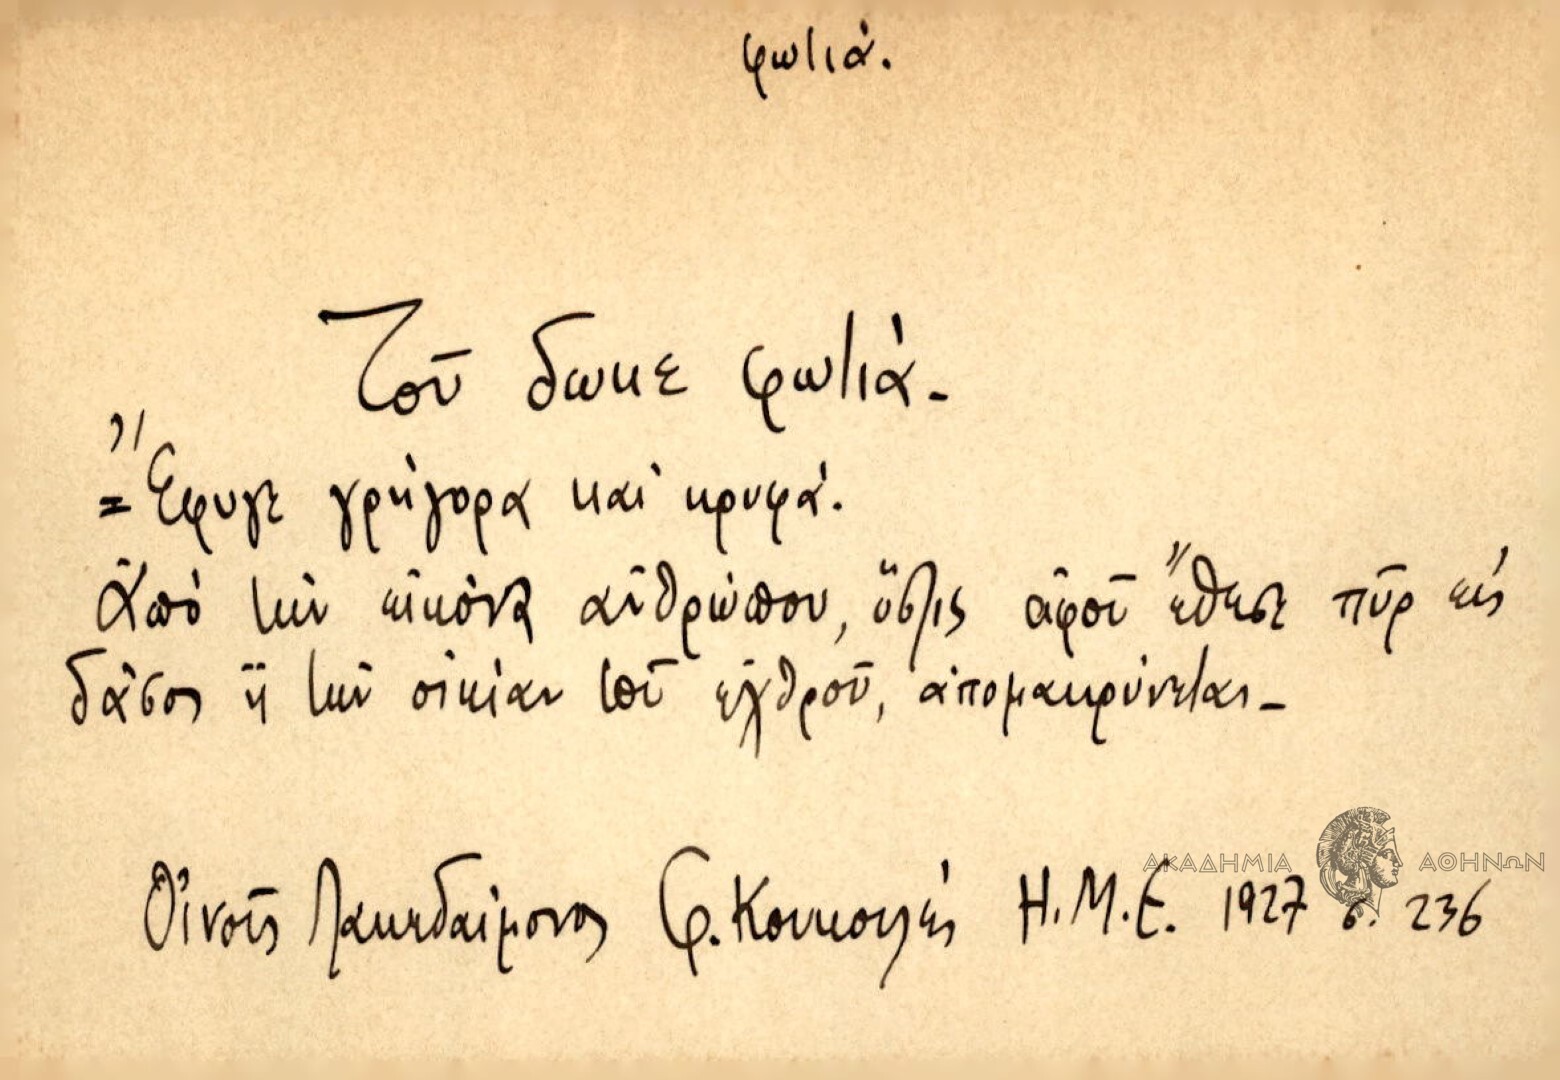 φωτιά.
Τοῦ δωκε φωτιά.
= Ἔφυγε γρήγορα καὶ κρυφά.
Ἀπὸ τὴν εἰκόνα ἀνθρώπου, ὅστις ἀφοῦ ἔθεσε πῦρ εἰς
δάσος ἢ τὴν οἰκίαν τοῦ ἐχθροῦ, ἀπομακρύνεται.
ΑΚΑΔΗΜΙΑ ΑΘΗΝΩΝ
Οἰνοῦς Λακεδαίμονος Φ. Κουκουλές Η.Μ.Ε. 1927 σ. 236